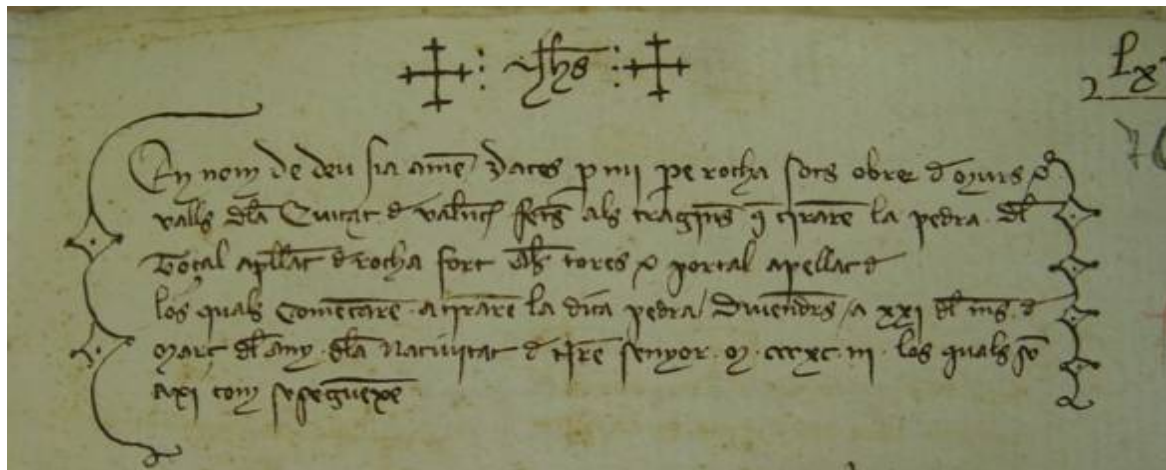 ✠ : Jhs : ✠
Lx
76
En nom de deu sia ame dates p mi pe rocha sots obrer d murs e
valls dla Ciutat d valenc fets als tragins q tirare la pedra dl
Tocal apllat d rocha fort als tores e portal apellat d
los quals Comencare a tirare la dita pedra / Divendrs / a xxi dl ms d
març dl any dla Nativitat d nre senyor m cccxc iii los quals so
axi com se segueixe